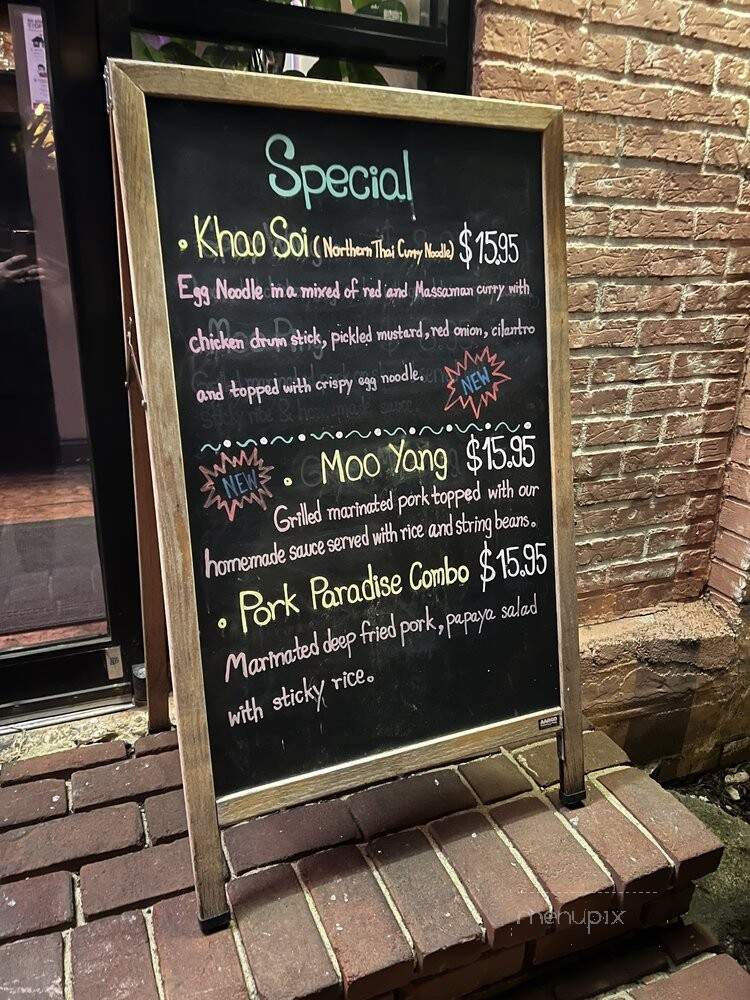 Special
• Khao Soi (Northern Thai Curry Noodle) $15.95
Egg Noodle in a mixed of red and Massaman curry with
chicken drum stick, pickled mustard, red onion, cilantro
and topped with crispy egg noodle.
NEW
NEW
• Moo Yang $15.95
Grilled marinated pork topped with our
homemade sauce served with rice and string beans.
• Pork Paradise Combo $15.95
Marinated deep fried pork, papaya salad
with sticky rice.
menupix